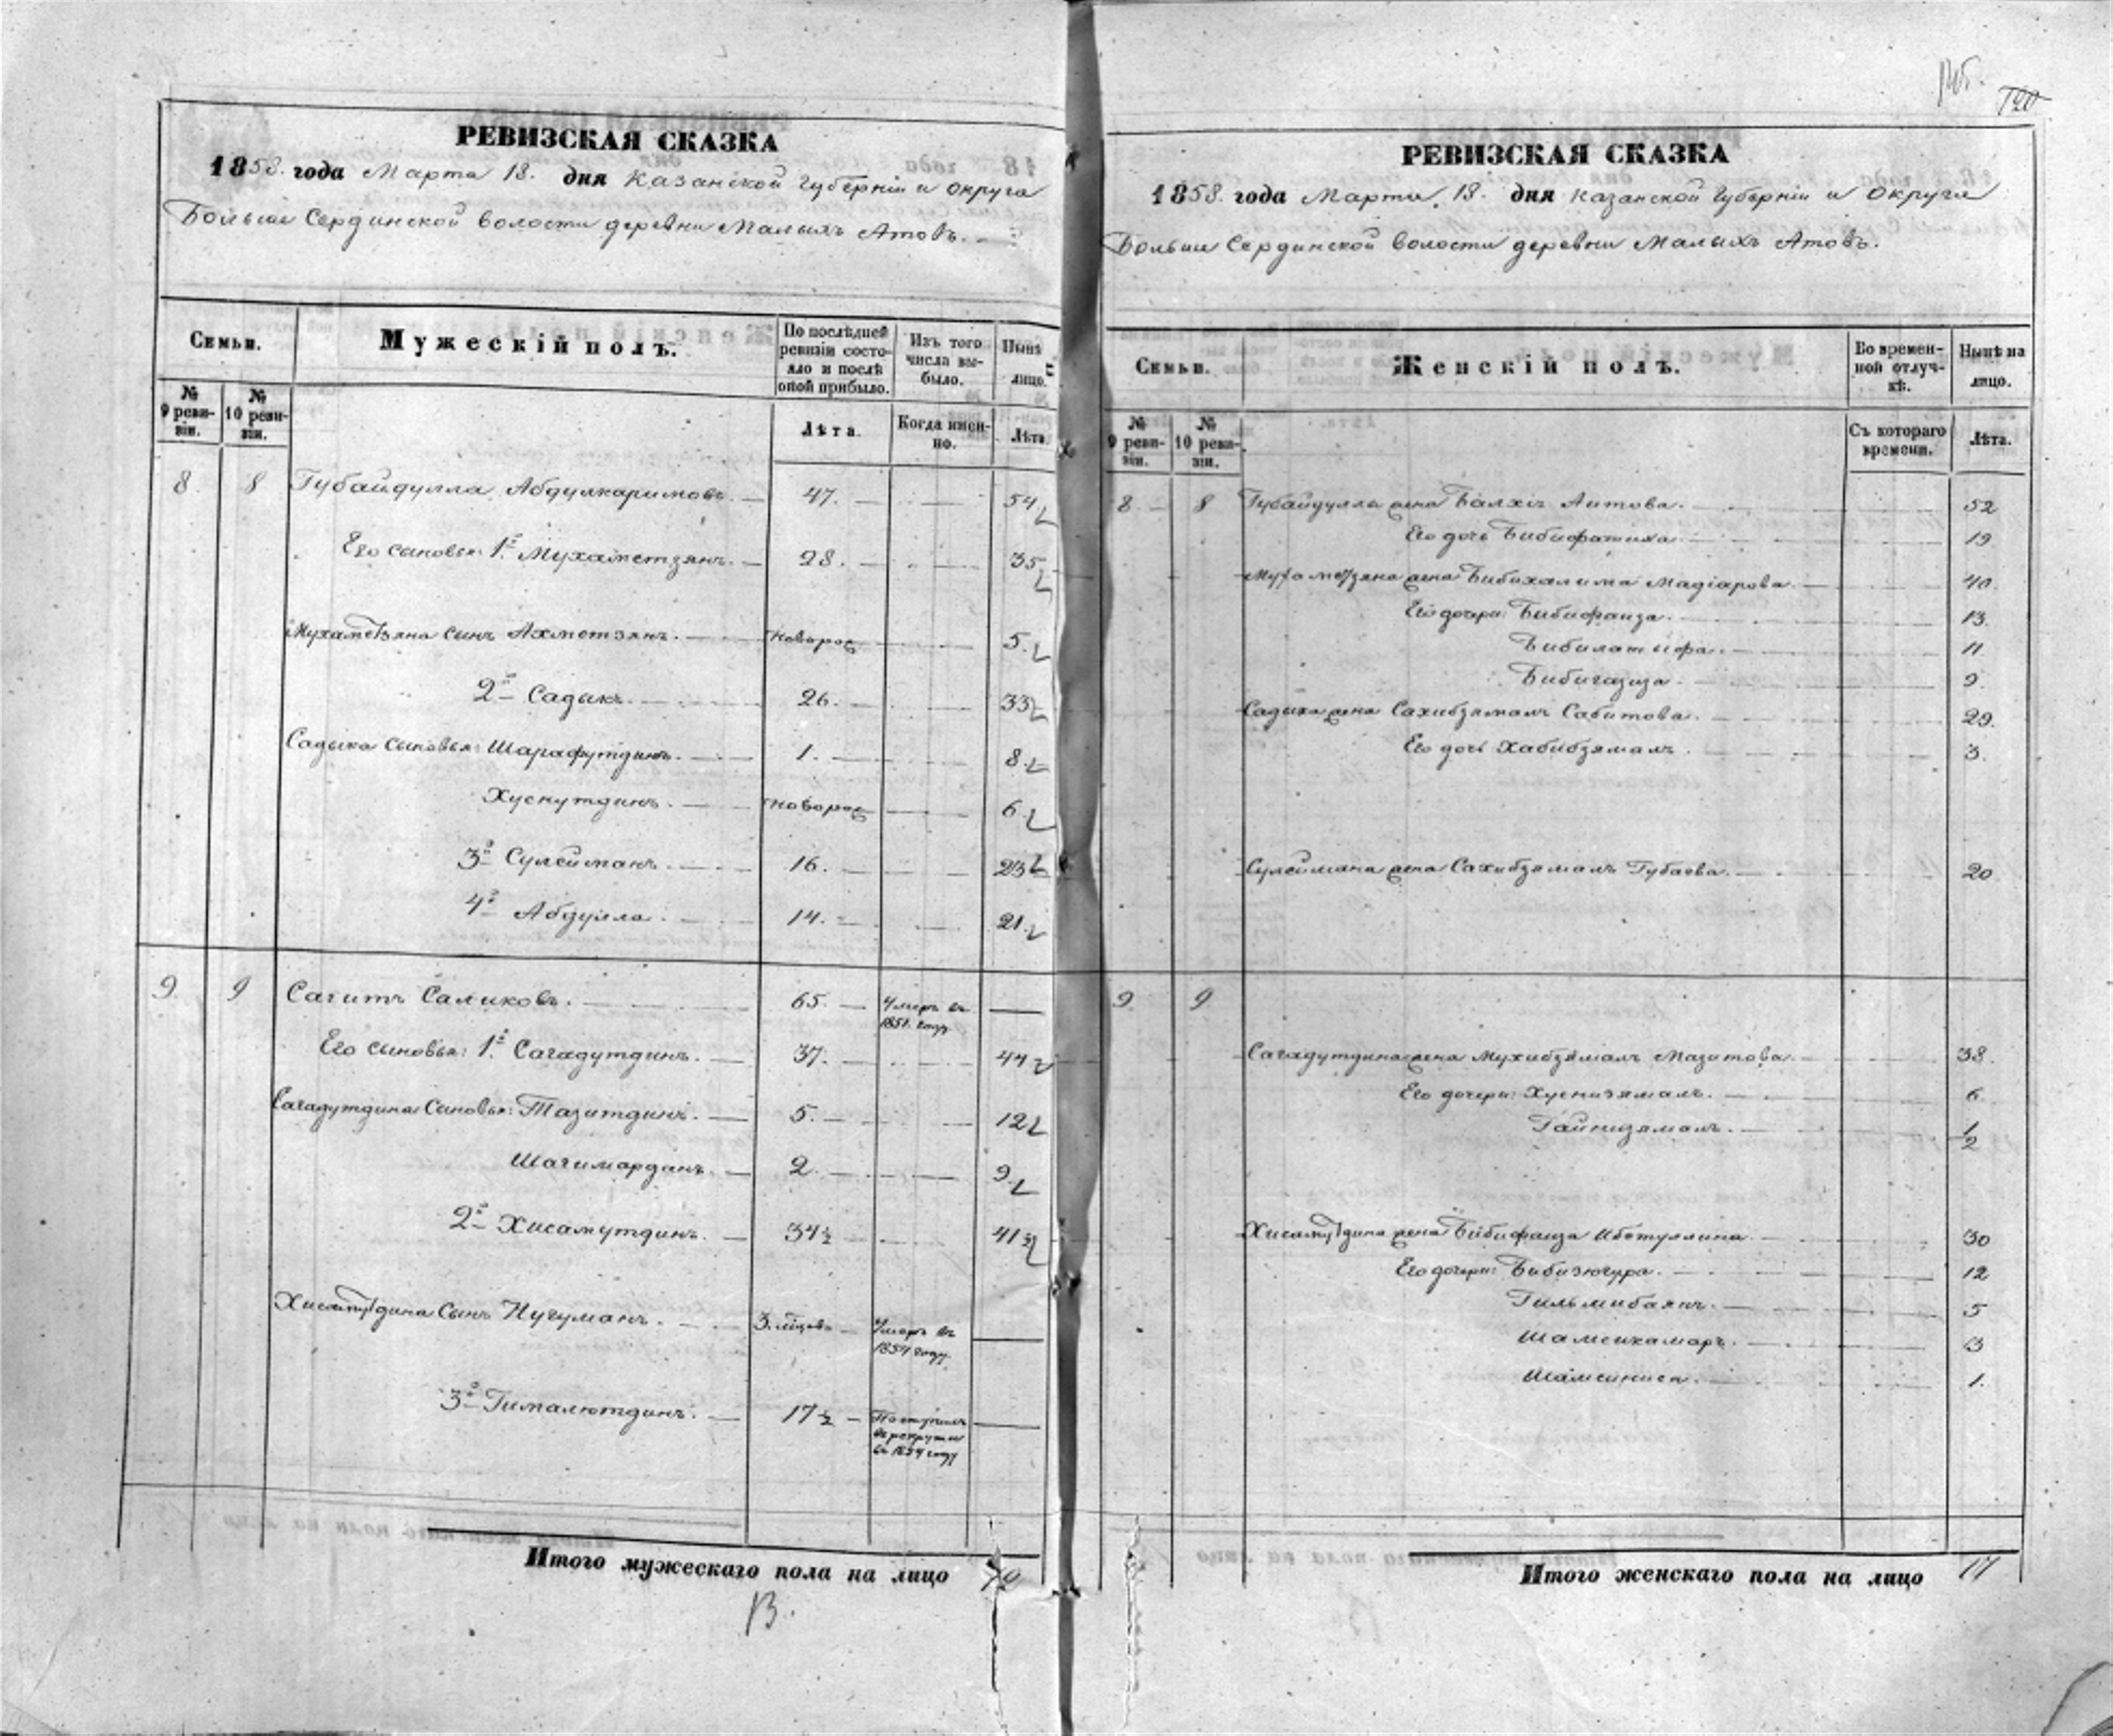 120
РЕВИЗСКАЯ СКАЗКА
1858. года Марта 18. дня Казанской Губерніи и округа
Больше Сердинской волости деревни Малыхъ Атовъ.
Семьи.
Мужескій полъ.
По послѣдней ревизіи состояло и послѣ оной прибыло.
Изъ того числа выбыло.
Нынѣ лицо.
№ 9 ревизіи.
№ 10 ревизіи.
Лѣта.
Когда именно.
Лѣта
8 8 Губайдулла Абдулкаримовъ. 47. 54
Его сыновья: 1й Мухаметзянъ. 28. 35
Мухаметзяна сынъ Ахметзянъ. новорож 5.
2й Садыкъ. 26. 33
Садыка сыновья: Шарафутдинъ. 1. 8.
Хуснутдинъ. новорож 6.
3й Сулейманъ. 16. 23
4й Абдулла. 14. 21.
9 9 Сагитъ Саликовъ. 65. Умеръ въ 1851. году
Его сыновья: 1й Сагадутдинъ. 37. 44
Сагадутдина сыновья: Тазитдинъ. 5. 12
Шагимарданъ. 2. 9
2й Хисамутдинъ. 34½ 41½
Хисамутдина сынъ Нугуманъ. 3. мѣсяц. Умеръ въ 1854 году
3й Гималютдинъ. 17½ Поступилъ въ рекруты въ 1854 году
Итого мужескаго пола на лицо
13.
РЕВИЗСКАЯ СКАЗКА
1858. года Марта 18. дня Казанской Губерніи и Округа
Больше Сердинской волости деревни Малыхъ Атовъ.
Семьи.
Женскій полъ.
Во временной отлучкѣ.
Нынѣ на лицо.
№ 9 ревизіи.
№ 10 ревизіи.
Съ котораго времени.
Лѣта.
8 8 Губайдуллы жена Балхія Аитова. 52
Его дочь Бибифатиха. 19
Мухаметзяна жена Бибихалима Мадіарова. 40.
Его дочери: Бибифаиза. 13.
Бибилатыфа. 11
Бибигазиза. 9.
Садыка жена Сахибзямалъ Сабитова. 29.
Его дочь Хабибзямалъ. 3.
Сулеймана жена Сахибзямалъ Губаева. 20
9 9
Сагадутдина жена Мухибзямалъ Мазитова. 38.
Его дочери: Хуснизямалъ. 6
Гайнизямалъ. ½
Хисамутдина жена Бибифаиза Ибетуллина. 30
Его дочери: Бибизюгура. 12
Гильмибаянъ. 5
Шамсикамаръ. 3
Шамсиниса. 1.
Итого женскаго пола на лицо 17